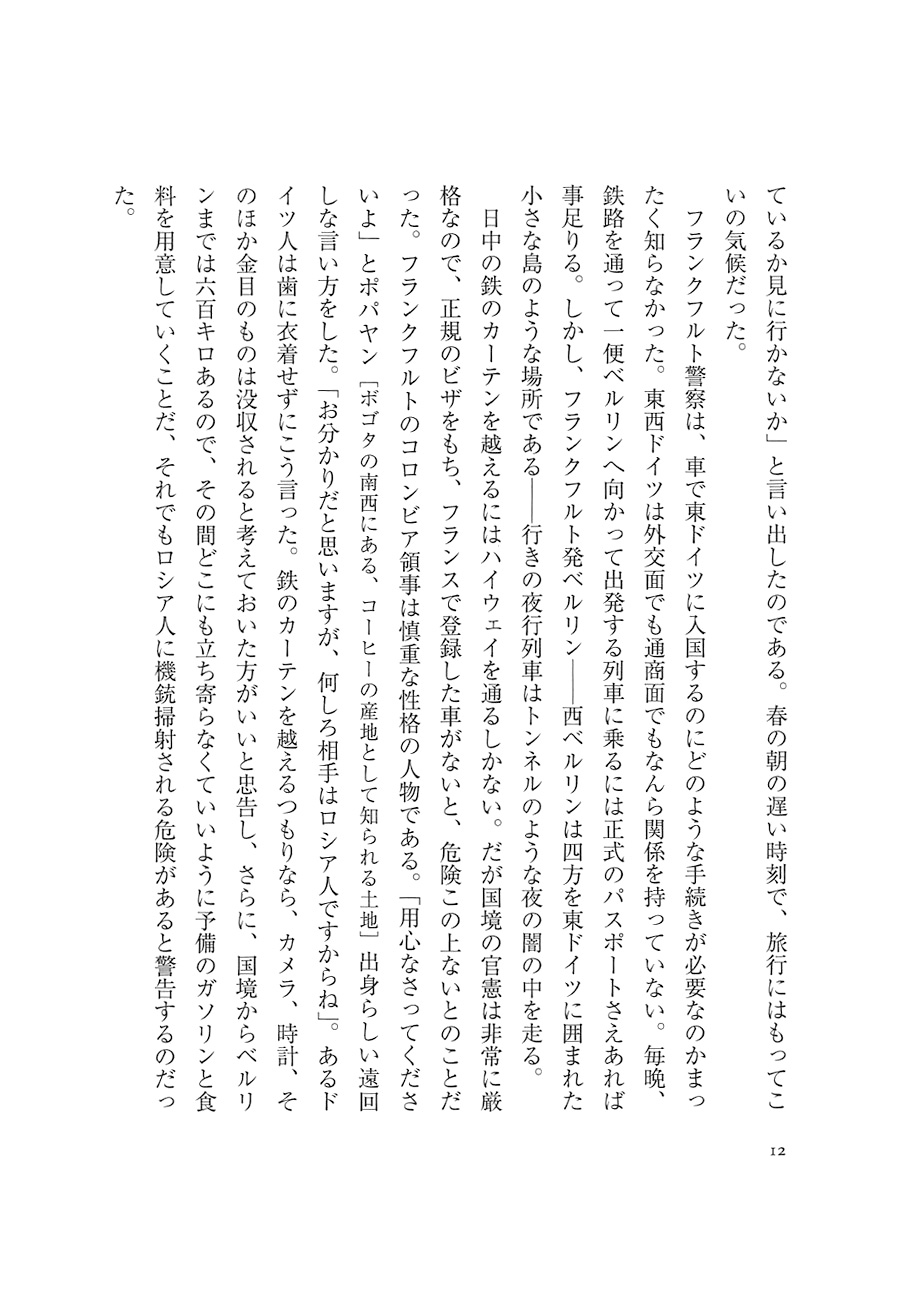 ているか見に行かないか」と言い出したのである。春の朝の遅い時刻で、旅行にはもってこ
いの気候だった。
　フランクフルト警察は、車で東ドイツに入国するのにどのような手続きが必要なのかまっ
たく知らなかった。東西ドイツは外交面でも通商面でもなんら関係を持っていない。毎晩、
鉄路を通って一便ベルリンへ向かって出発する列車に乗るには正式のパスポートさえあれば
事足りる。しかし、フランクフルト発ベルリン――西ベルリンは四方を東ドイツに囲まれた
小さな島のような場所である――行きの夜行列車はトンネルのような夜の闇の中を走る。
　日中の鉄のカーテンを越えるにはハイウェイを通るしかない。だが国境の官憲は非常に厳
格なので、正規のビザをもち、フランスで登録した車がないと、危険この上ないとのことだ
った。フランクフルトのコロンビア領事は慎重な性格の人物である。「用心なさってくださ
いよ」とポパヤン［ボゴタの南西にある、コーヒーの産地として知られる土地］出身らしい遠回
しな言い方をした。「お分かりだと思いますが、何しろ相手はロシア人ですからね」。あるド
イツ人は歯に衣着せずにこう言った。鉄のカーテンを越えるつもりなら、カメラ、時計、そ
のほか金目のものは没収されると考えておいた方がいいと忠告し、さらに、国境からベルリ
ンまでは六百キロあるので、その間どこにも立ち寄らなくていいように予備のガソリンと食
料を用意していくことだ、それでもロシア人に機銃掃射される危険があると警告するのだっ
た。
12